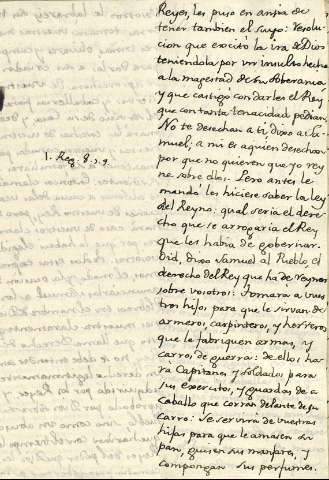 Reyes, les puso en ansia de
tener tambien el suyo: resolu-
cion que excito la ira de Dios
teniendola por un insulto hecho
a la magestad de su soberania
y que castigó con darles el Rey
que con tanta tenacidad pedian.
No te desechan a ti dixo a Sa-
muel; a mi es a quien desechan
por que no quieren que yo rey
ne sobre ellos. Pero antes le
mandó les hiciese saber la ley
del Reyno: qual seria el dere-
cho que se arrogaria el Rey
que les habia de gobernar.
Oid, dixo Samuel al Pueblo el
derecho del Rey que ha de reynar
sobre vosotros: Tomará a vues
tros hijos para que le sirvan de
armeros, carpinteros, y herreros
que le fabriquen armas, y
carros de guerra: de ellos ha-
ra Capitanes y soldados para
sus exercitos, y guardas de a
caballo que corran delante de su
carro: se servirá de vuestras
hijas para que le amasen su
pan, guisen sus manjares, y
compongan sus perfumes.
1. Reg. 8. 7. 9.